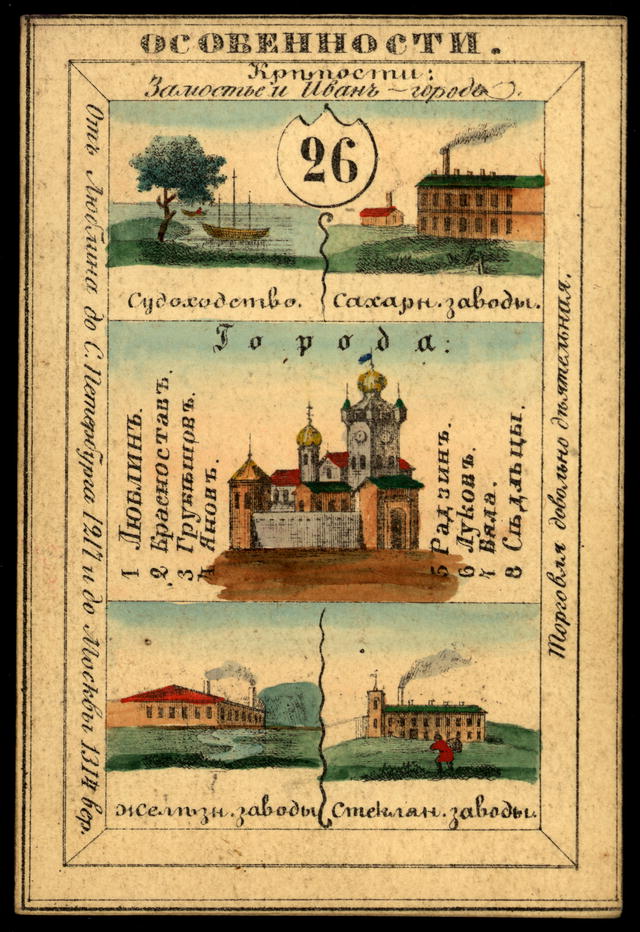 ОСОБЕННОСТИ.
Крѣпости:
Замостье и Иванъ-городъ.
26
Судоходство.
Сахарн. заводы.
Города:
1 Люблинъ.
2 Красноставъ.
3 Грубѣшовъ.
4 Яновъ.
5 Радзинъ.
6 Луковъ.
7 Бяла.
8 Сѣдльцы.
Желѣзн. заводы
Стеклян. заводы.
Отъ Люблина до С. Петербурга 1217 и до Москвы 1314 вер.
Торговля довольно дѣятельная.